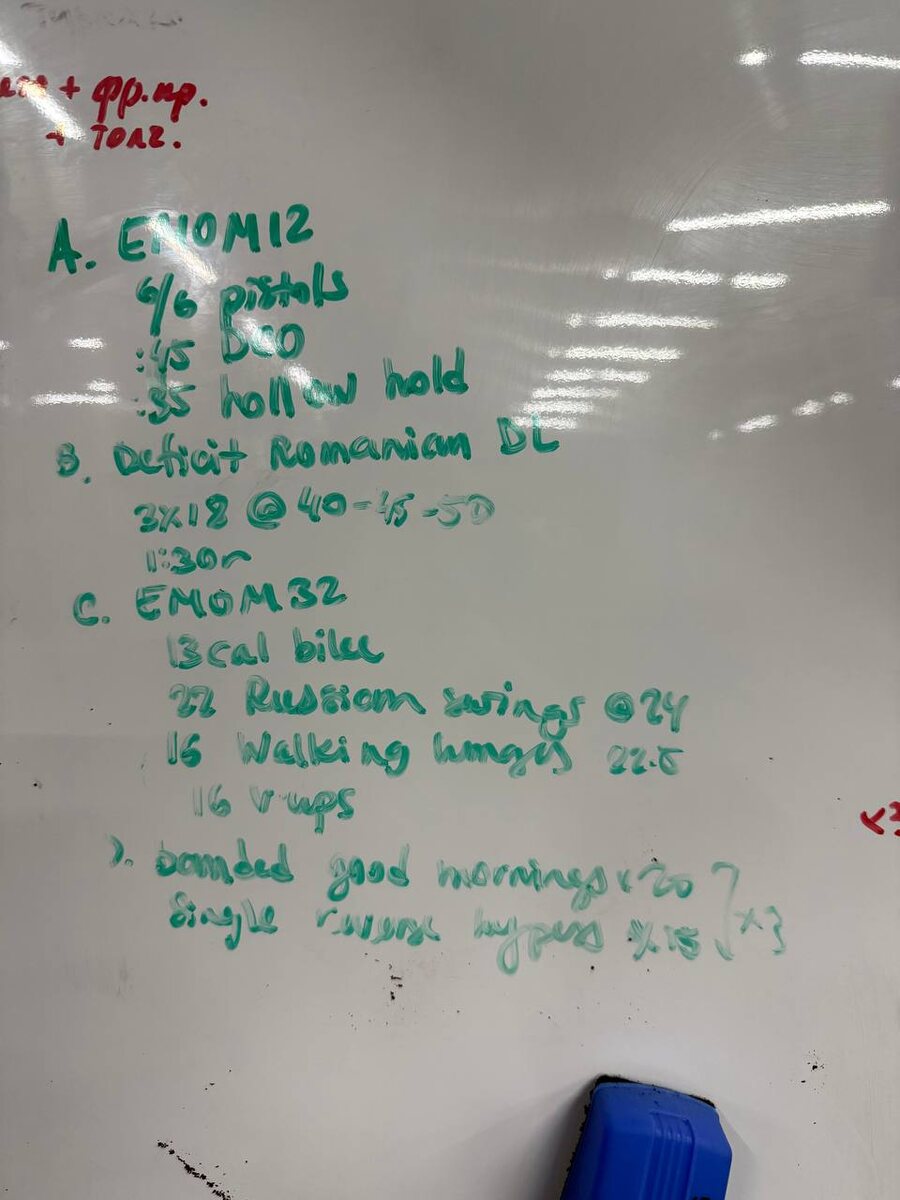 + фр.пр.
+ толч.
A. EMOM12
6/6 pistols
:45 DUO
:35 hollow hold
B. Deficit Romanian DL
3x12 @ 40-45-50
1:30r
C. EMOM32
13 cal bike
22 Russian swings @24
16 Walking lunges 22.5
16 v-ups
D. banded good mornings x 20
single reverse hypers x 15 } x 3